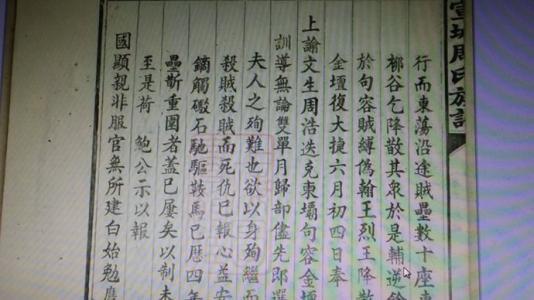 宣城周氏族譜
行而東蕩沿途賊壘數十座
柳谷乞降散其眾於是輔逆
於句容賊縛偽翰王烈王降散
金壇復大捷六月初四日奉
上諭文生周浩迭克東壩句容金壇
訓導無論雙單月歸部儘先即選
夫人之殉難也欲以身殉繼而
殺賊殺賊而死仇已報心益安
鏑觸礮石馳驅鞍馬已歷四年
壘斬重圍者蓋已屢矣以制未
至是荷 鮑公示以報
國顯親非服官無所建白始勉應